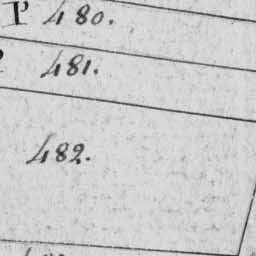 P 480.
481.
482.